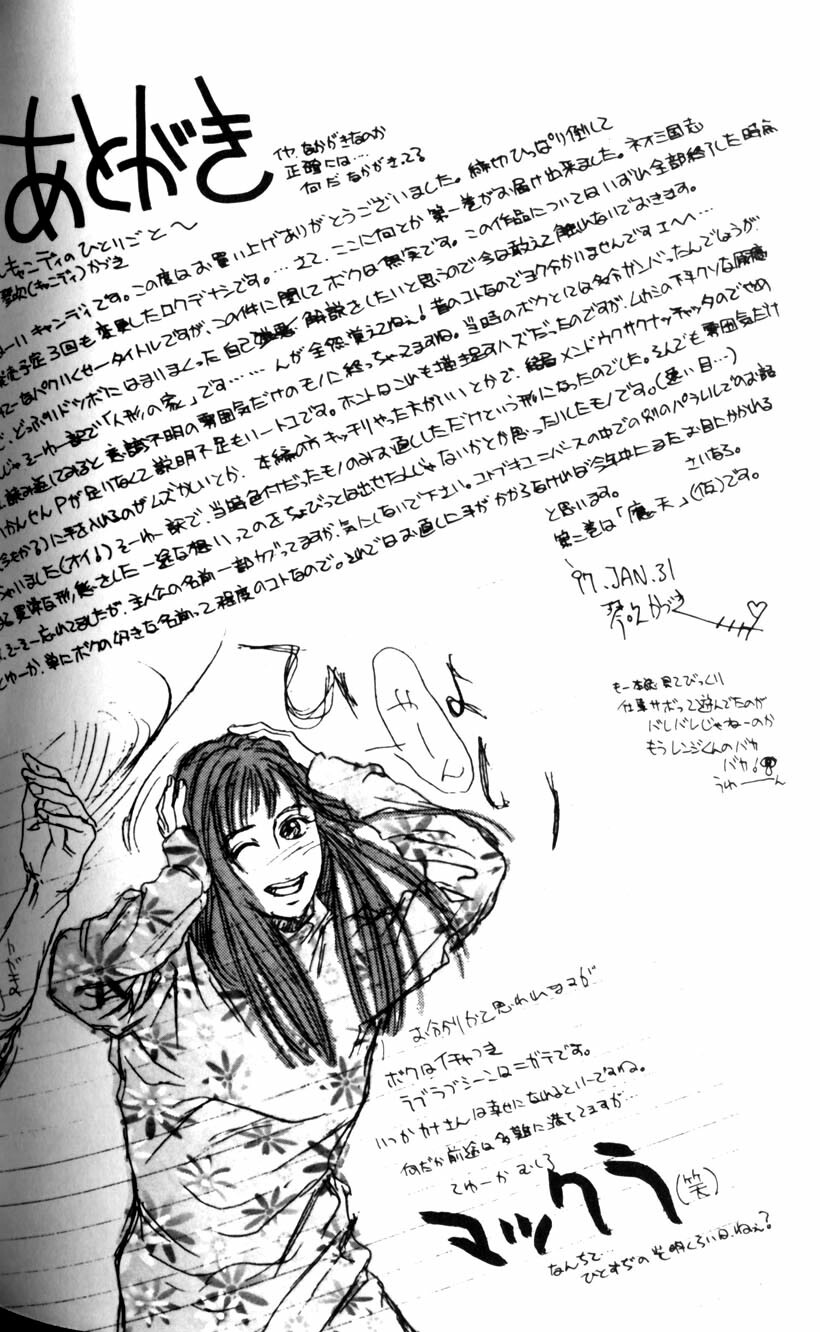 あとがき
イヤ、なかがきなのか
正確には…
何だ なかがきって
キャンディのひとりごと〜
(キャンディ)かづき
はーい キャンディです。この度はお買い上げありがとうございました。締切ひっぱり倒して
発売予定3回も変更したロクデナシです。…さて、ここに何とか第一巻がお届け出来ました。ネオ三国志
パクリくせータイトルですが、この件に関してボクは無実です。この作品についてはいずれ全部終了した時点
で、どっぷりドツボにはまりまくった自己 解説をしたいと思うので今は敢えて触れないでおきます。
じゃ そーゆー訳で「人形の家」です………んが全然覚えてねぇ!昔のコトなのでヨク分かいませんですエヘヘ…
読み返してみると意識不明の雰囲気だけのモノに終っちゃってますね。当時のボクとしては多分ガンバったんでしょうが
いかんせんPが足りなくて説明不足もいートコです。ホントはこれも描き足すハズだったのですが、ムカシの下手クソな原稿
に手を入れるのがムズかしいとか、本編の方キッチリやった方がいいとかで、結局メンドウクサクナッチャッタのでやめ
ちゃいました(オイ!)そーゆー訳で、当時色付だったモノのみお直ししただけという形になったのでした。るんでも雰囲気だけ
な形、 した一途な想いってのをちょびっとは出せたんじゃないかとか思ったりしたモノです。(遠い目…)
そーそー忘れてましたが、主人公の名前一部カブってますが、気にしないで下さい。コトブキユニバースの中での別のパラレルでのお話
とゆーか、単にボクの好きな名前って程度のコトなので。それではお直しに手がかからなければ今年中にまたお目にかかれる
と思います。
さいなら。
第二巻は「魔天」(仮)です。
'97.JAN.31
琴吹かづき
もー本誌見てびっくり
仕事サボって遊んでたのが
バレバレじゃねーのか
もうレンジくんのバカ
バカ!
うわーーん
ひょ
やーん
いい
お分りかと思われますが
ボクはイチャつき
ラブラブシーンはニガテです。
いつかカナさんは幸せになれるといーですね。
何だか前途は多難に満ちてますが…
てゆーかむしろ
マックラ(笑)
なんちて…
ひとすぢの光明くらいはねぇ?